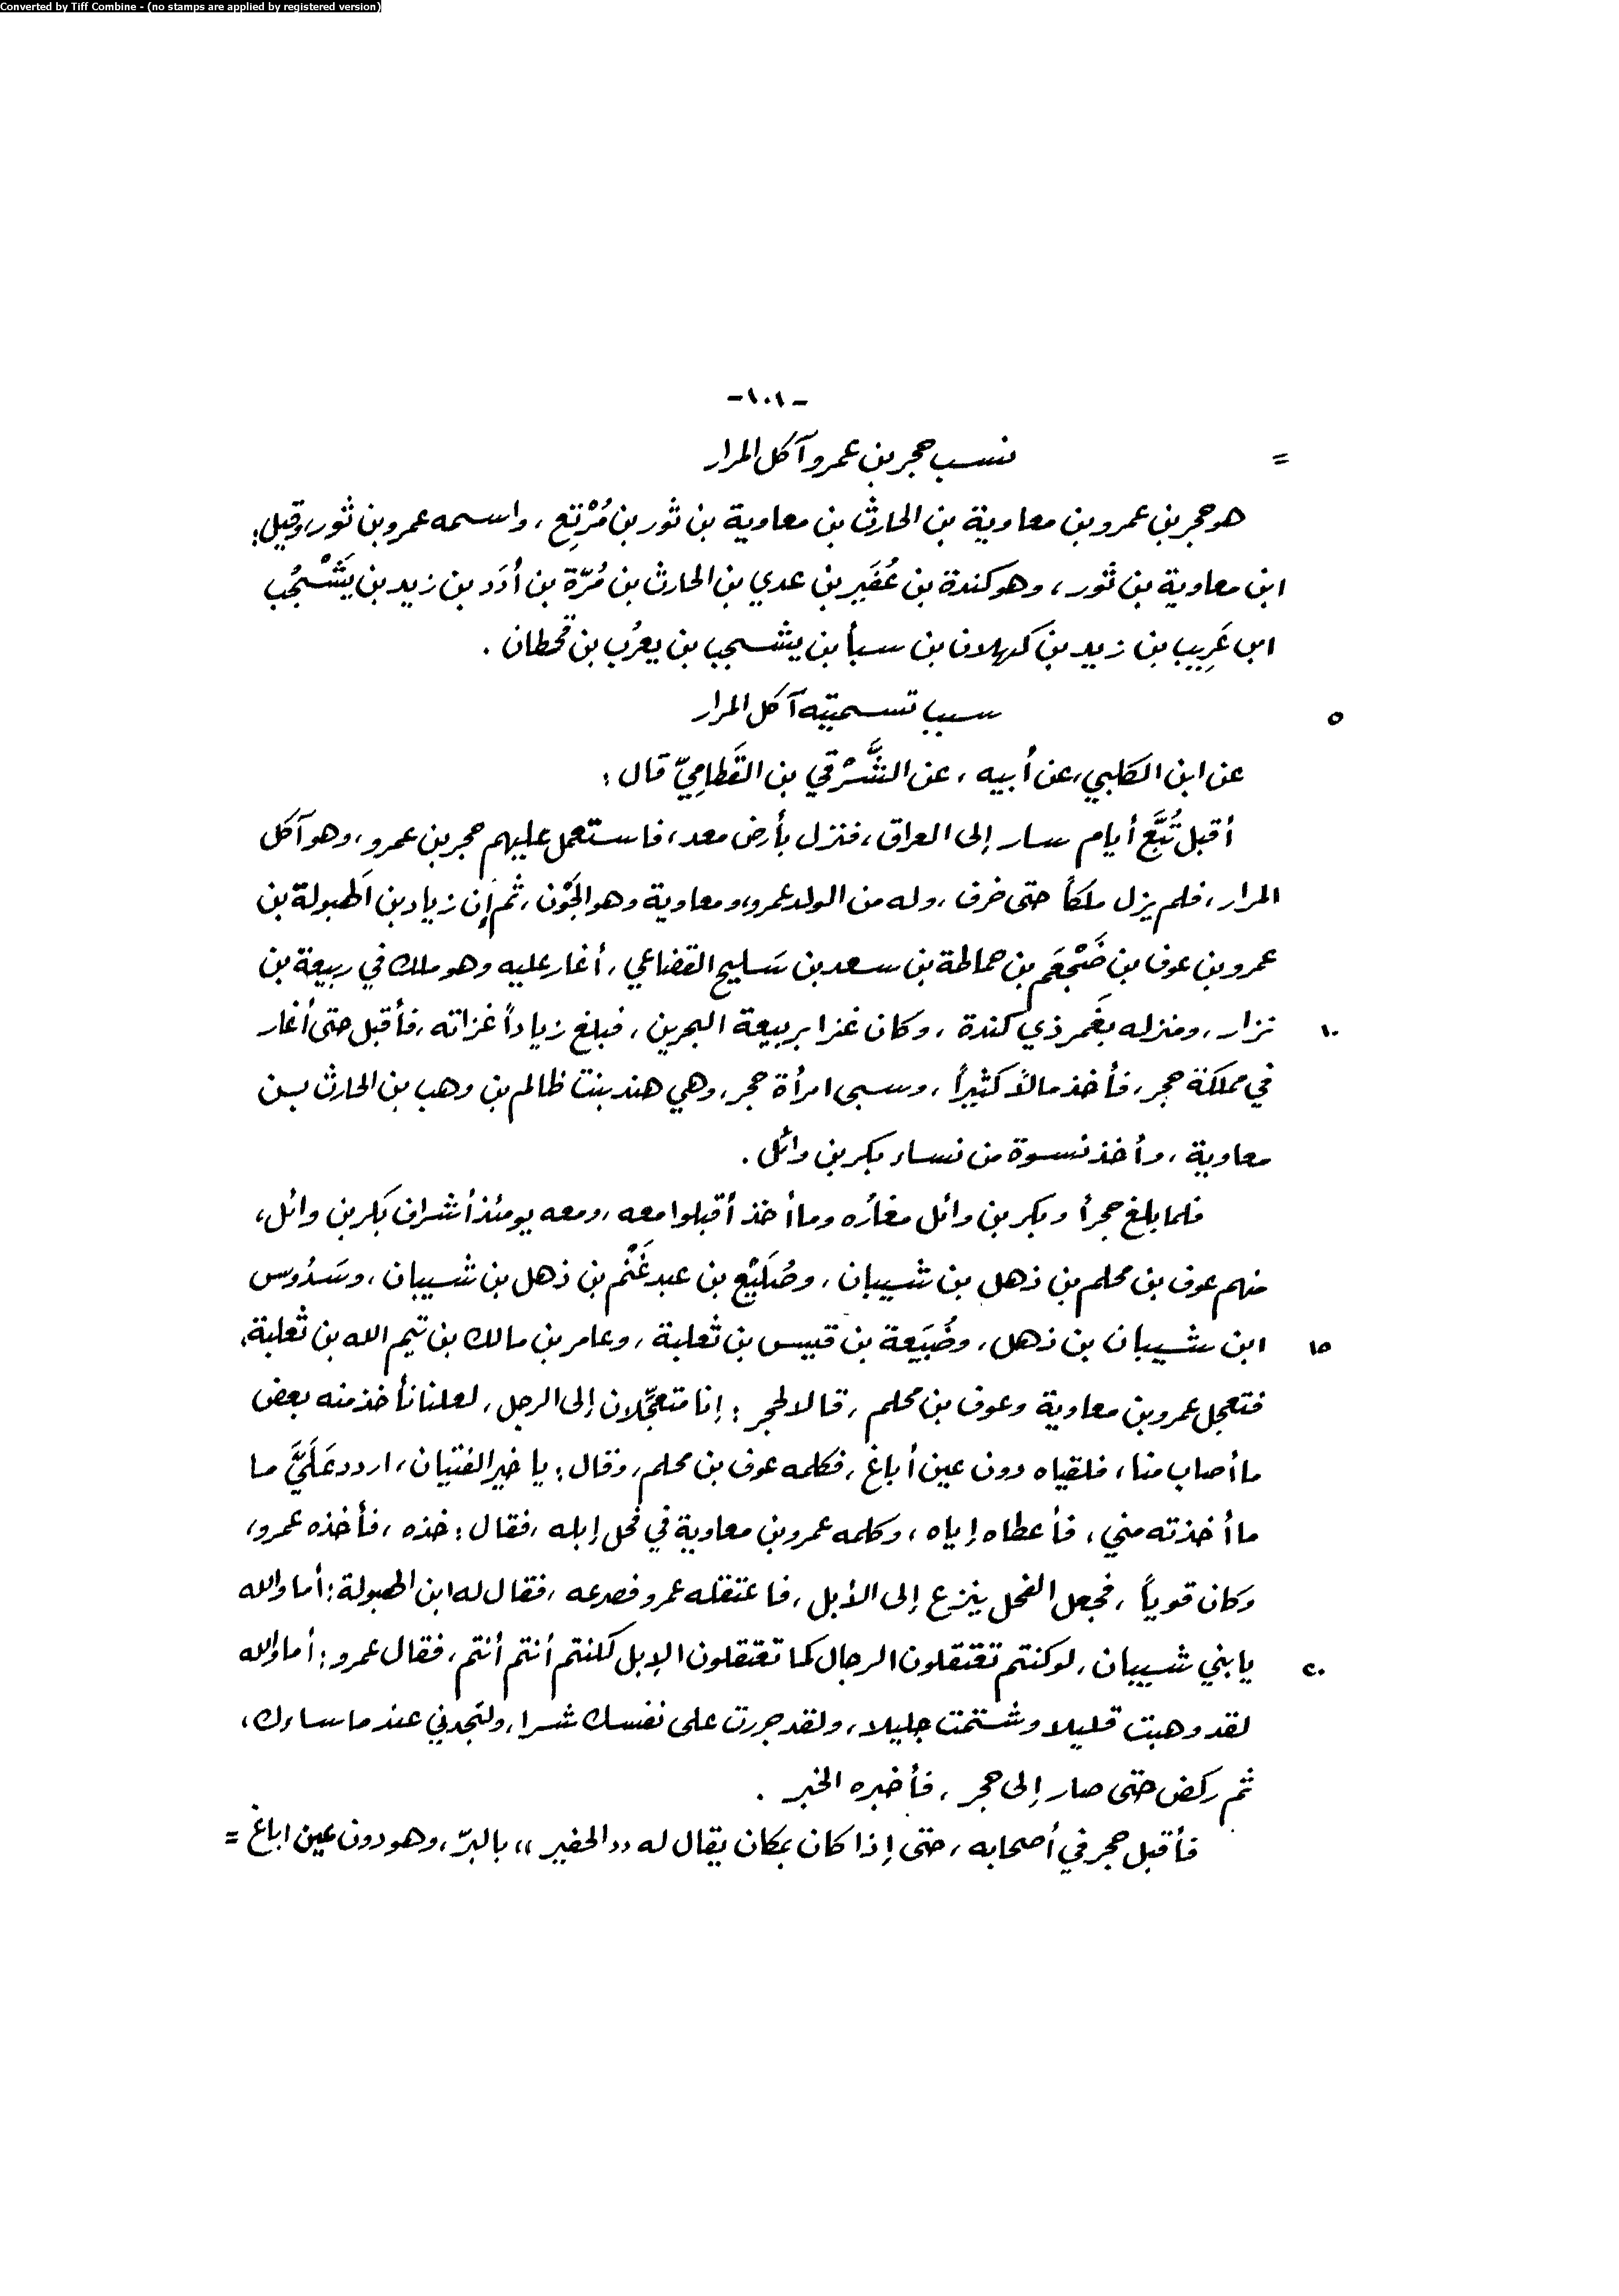 Converted by Tiff Combine - (no stamps are applied by registered version)
-١٠١-
= نسب حجر بن عمرو آكل المرار
هو حجر بن عمرو بن معاوية بن الحارث بن معاوية بن ثور بن مُرْتِع ، واسمه عمرو بن ثور، وقيل:
ابن معاوية بن ثور ، وهو كندة بن عُفَير بن عدي بن الحارث بن مُرّة بن أُدَد بن زيد بن يَشْجُب
ابن عَرِيب بن زيد بن كهلان بن سبأ بن يشجب بن يعرُب بن قحطان .
٥ سبب تسميته آكل المرار
عن ابن الكلبي، عن أبيه ، عن الشَّرْقي بن القَطامِيّ قال :
أقبل تُبَّع أيام سار إلى العراق ، فنزل بأرض معد ، فاستعمل عليهم حجر بن عمرو ، وهو آكل
المرار ، فلم يزل ملكاً حتى خرف ، وله من الولد عمرو، ومعاوية وهو الجَوْن ، ثم إن زياد بن الهبولة بن
عمرو بن عوف بن ضَجْعَم بن حماطة بن سعد بن سَليح القضاعي ، أغار عليه وهو ملك في ربيعة بن
١٠ نزار ، ومنزله بغَمر ذي كندة ، وكان غزا بربيعة البحرين ، فبلغ زياداً غزاته ، فأقبل حتى أغار
في مملكة حجر ، فأخذ مالاً كثيراً ، وسبى امرأة حجر ، وهي هند بنت ظالم بن وهب بن الحارث بن
معاوية ، وأخذ نسوة من نساء بكر بن وائل .
فلما بلغ حجراً وبكر بن وائل مغارُه وما أخذ أقبلوا معه ، ومعه يومئذ أشراف بكر بن وائل ،
منهم عوف بن محلم بن ذهل بن شيبان ، وصُلَيْع بن عبد غَنْم بن ذهل بن شيبان ، وسَدُوس
١٥ ابن شيبان بن ذهل ، وضُبَيَعة بن قيس بن ثعلبة ، وعامر بن مالك بن تيم الله بن ثعلبة،
فتعجل عمرو بن معاوية وعوف بن محلم ، قالا لحجر : إنا متعجِّلان إلى الرجل ، لعلنا نأخذ منه بعض
ما أصاب منا ، فلقياه دون عين أباغ ، فكلمه عوف بن محلم ، وقال : يا خير الفتيان ، اردد عَلَيَّ ما
ما أخذته مني ، فأعطاه إياه ، وكلمه عمرو بن معاوية في فحل إبله ، فقال : خذه ، فأخذه عمرو ،
وكان قوياً ، فجعل الفحل ينزع إلى الأبل ، فاعتقله عمرو فصرعه ، فقال له ابن الهبولة : أما والله
٢٠ يا بني شيبان ، لوكنتم تعتقلون الرجال كما تعتقلون الإبل لكنتم أنتم أنتم ، فقال عمرو : أما والله
لقد وهبت قليلا وشتمت جليلا ، ولقد جررت على نفسك شرا ، ولتجدني عند ما ساءك ،
ثم ركض حتى صار إلى حجر ، فأخبره الخبر .
فأقبل حجر في أصحابه ، حتى إذا كان بمكان يقال له ‹‹ الحفير ›› بالبرّ ، وهو دون عين اباغ =